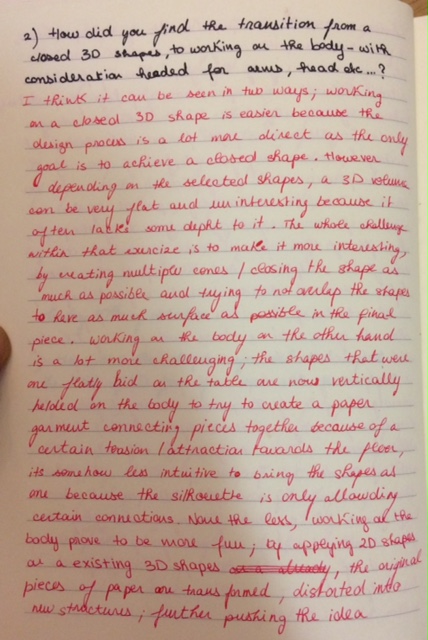 2) How did you find the transition from a
closed 3D shapes, to working on the body - with
consideration needed for arms, head etc...?
I think it can be seen in two ways; working
on a closed 3D shape is easier because the
design process is a lot more direct as the only
goal is to achieve a closed shape. However
depending on the selected shapes, a 3D volume
can be very flat and uninteresting because it
often lacks some depht to it. The whole challenge
within that exercize is to make it more interesting,
by creating multiple cones / closing the shape as
much as possible and trying to not overlap the shapes
to have as much surface as possible in the final
piece. Working on the body on the other hand
is a lot more challenging; the shapes that were
one flatly laid on the table are now vertically
helded on the body to try to create a paper
garment connecting pieces together because of a
certain tension / attraction towards the floor,
its somehow less intuitive to bring the shapes as
one because the silhouette is only allowding
certain connections. None the less, working on the
body prove to be more fun; by applying 2D shapes
on a existing 3D shapes on a already, the original
pieces of paper are transformed, distorted into
new structures; further pushing the idea